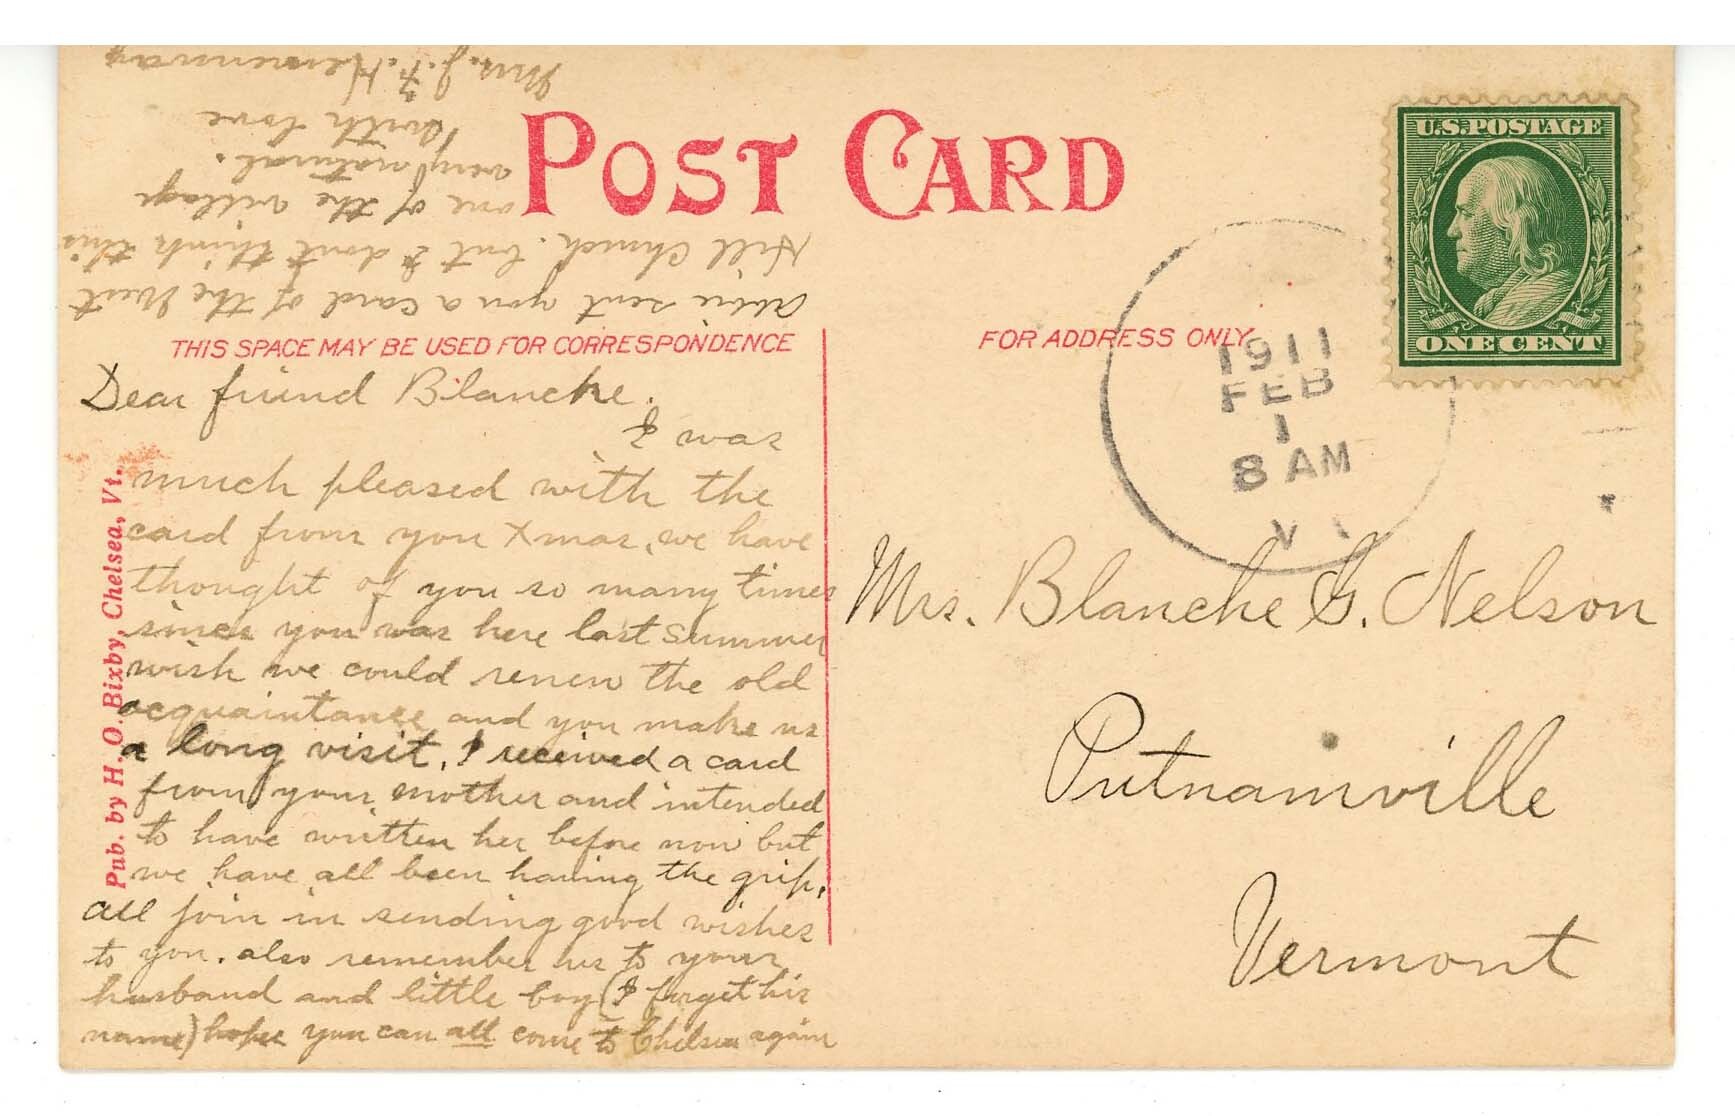 POST CARD
U.S. POSTAGE
ONE CENT
THIS SPACE MAY BE USED FOR CORRESPONDENCE
FOR ADDRESS ONLY
1911
FEB
1
8 AM
VT
Pub. by H. O. Bixby, Chelsea, Vt.
Dear friend Blanche.
I was
much pleased with the
card from you Xmas, we have
thought of you so many times
since you was here last summer
wish we could renew the old
acquaintance and you make us
a long visit, I received a card
from your mother and intended
to have written her before now but
we have all been having the grip,
all join in sending good wishes
to you. also remember us to your
husband and little boy (I forget his
name) hope you can all come to Chelsea again
sent you a card of the West
Hill Church. but I dont think this
one of the village
very natural.
With love
Mrs. J. F. Hemenway
Mrs. Blanche G. Nelson
Putnamville
Vermont